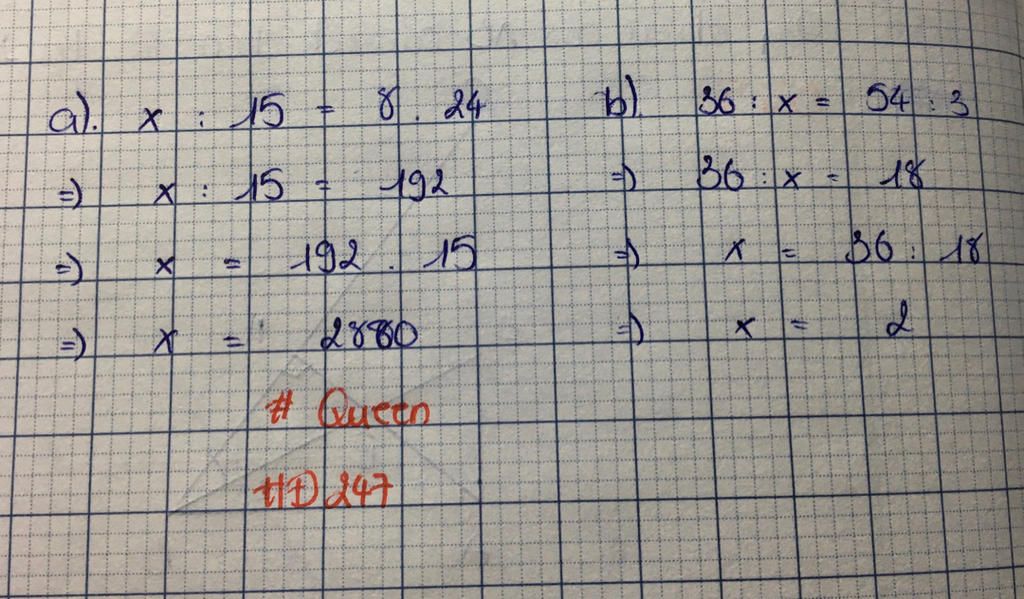 a). x : 15 = 8 . 24
=) x : 15 = 192
=) x = 192 . 15
=) x = 2880
b). 36 : x = 54 : 3
=) 36 : x = 18
=) x = 36 : 18
=) x = 2
# Queen
HĐ 247